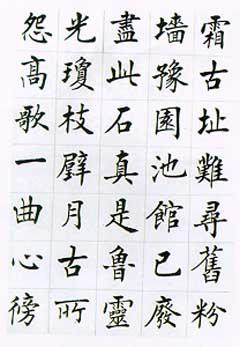 霜古址難尋舊粉
墻豫園池館已廢
盡此石真是魯靈
光瓊枝璧月古所
怨高歌一曲心徬